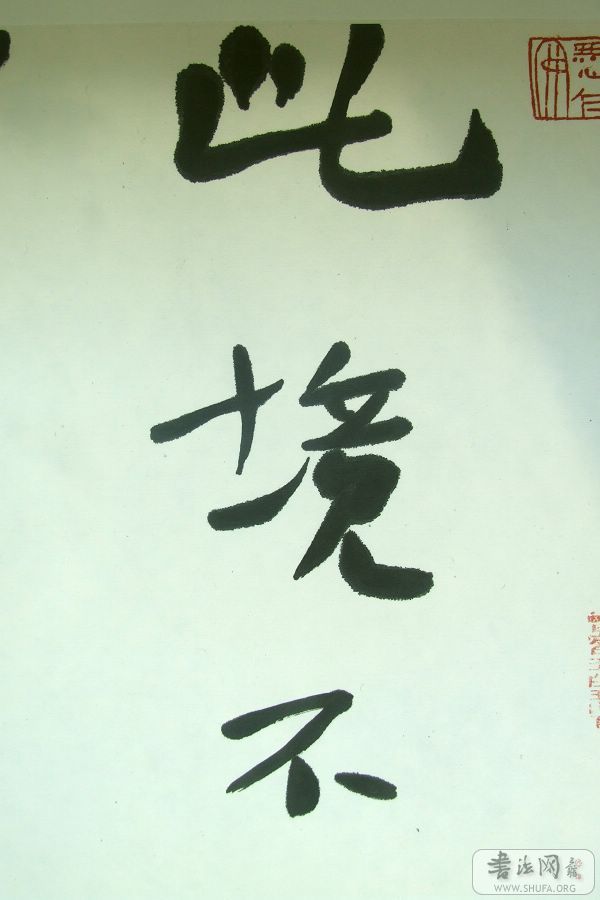 此境不
書法网
WWW.SHUFA.ORG